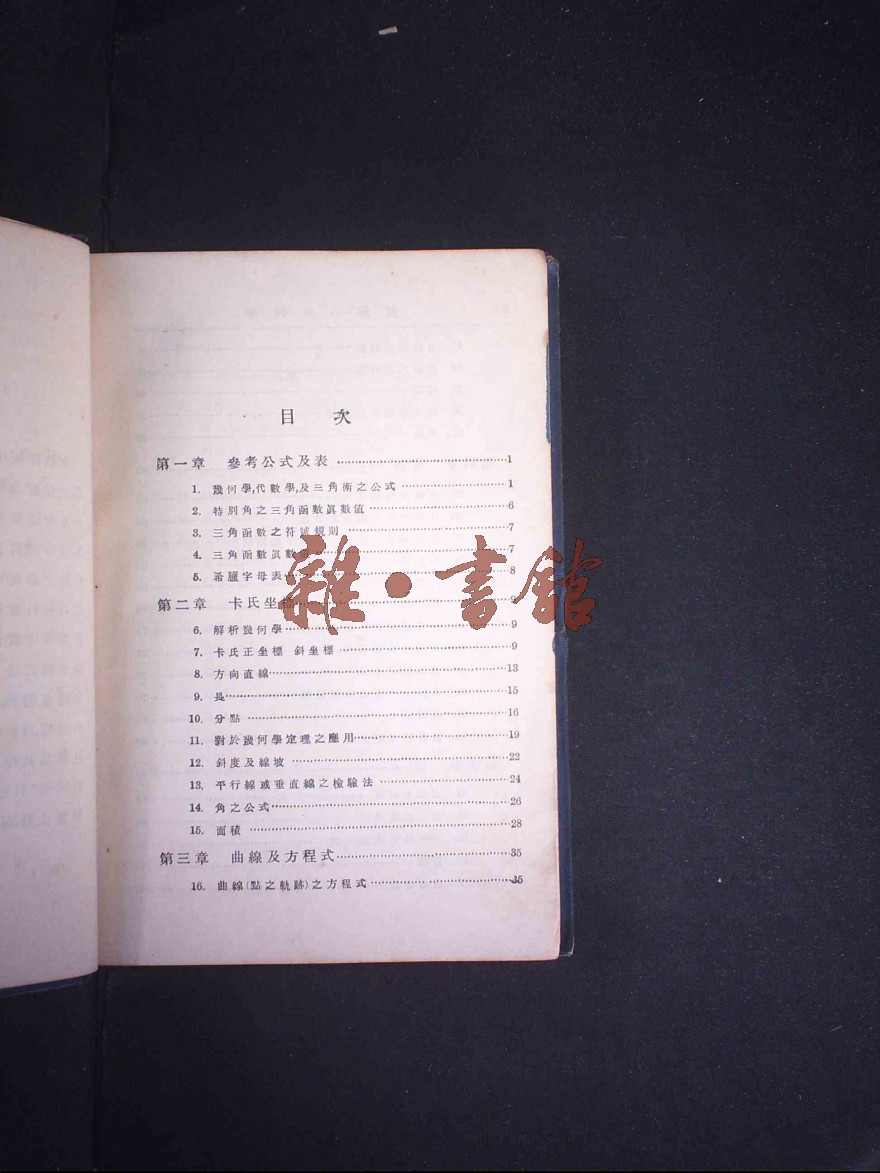 目 次
第一章 參考公式及表 1
1. 幾何學,代數學,及三角術之公式 1
2. 特別角之三角函數眞數值 6
3. 三角函數之符號規則 7
4. 三角函數眞數 7
5. 希臘字母表 8
第二章 卡氏坐標 9
6. 解析幾何學 9
7. 卡氏正坐標 斜坐標 9
8. 方向直線 13
9. 長 15
10. 分點 16
11. 對於幾何學定理之應用 19
12. 斜度及線坡 22
13. 平行線或垂直線之檢驗法 24
14. 角之公式 26
15. 面積 28
第三章 曲線及方程式 35
16. 曲線(點之軌跡)之方程式 35
雜·書館